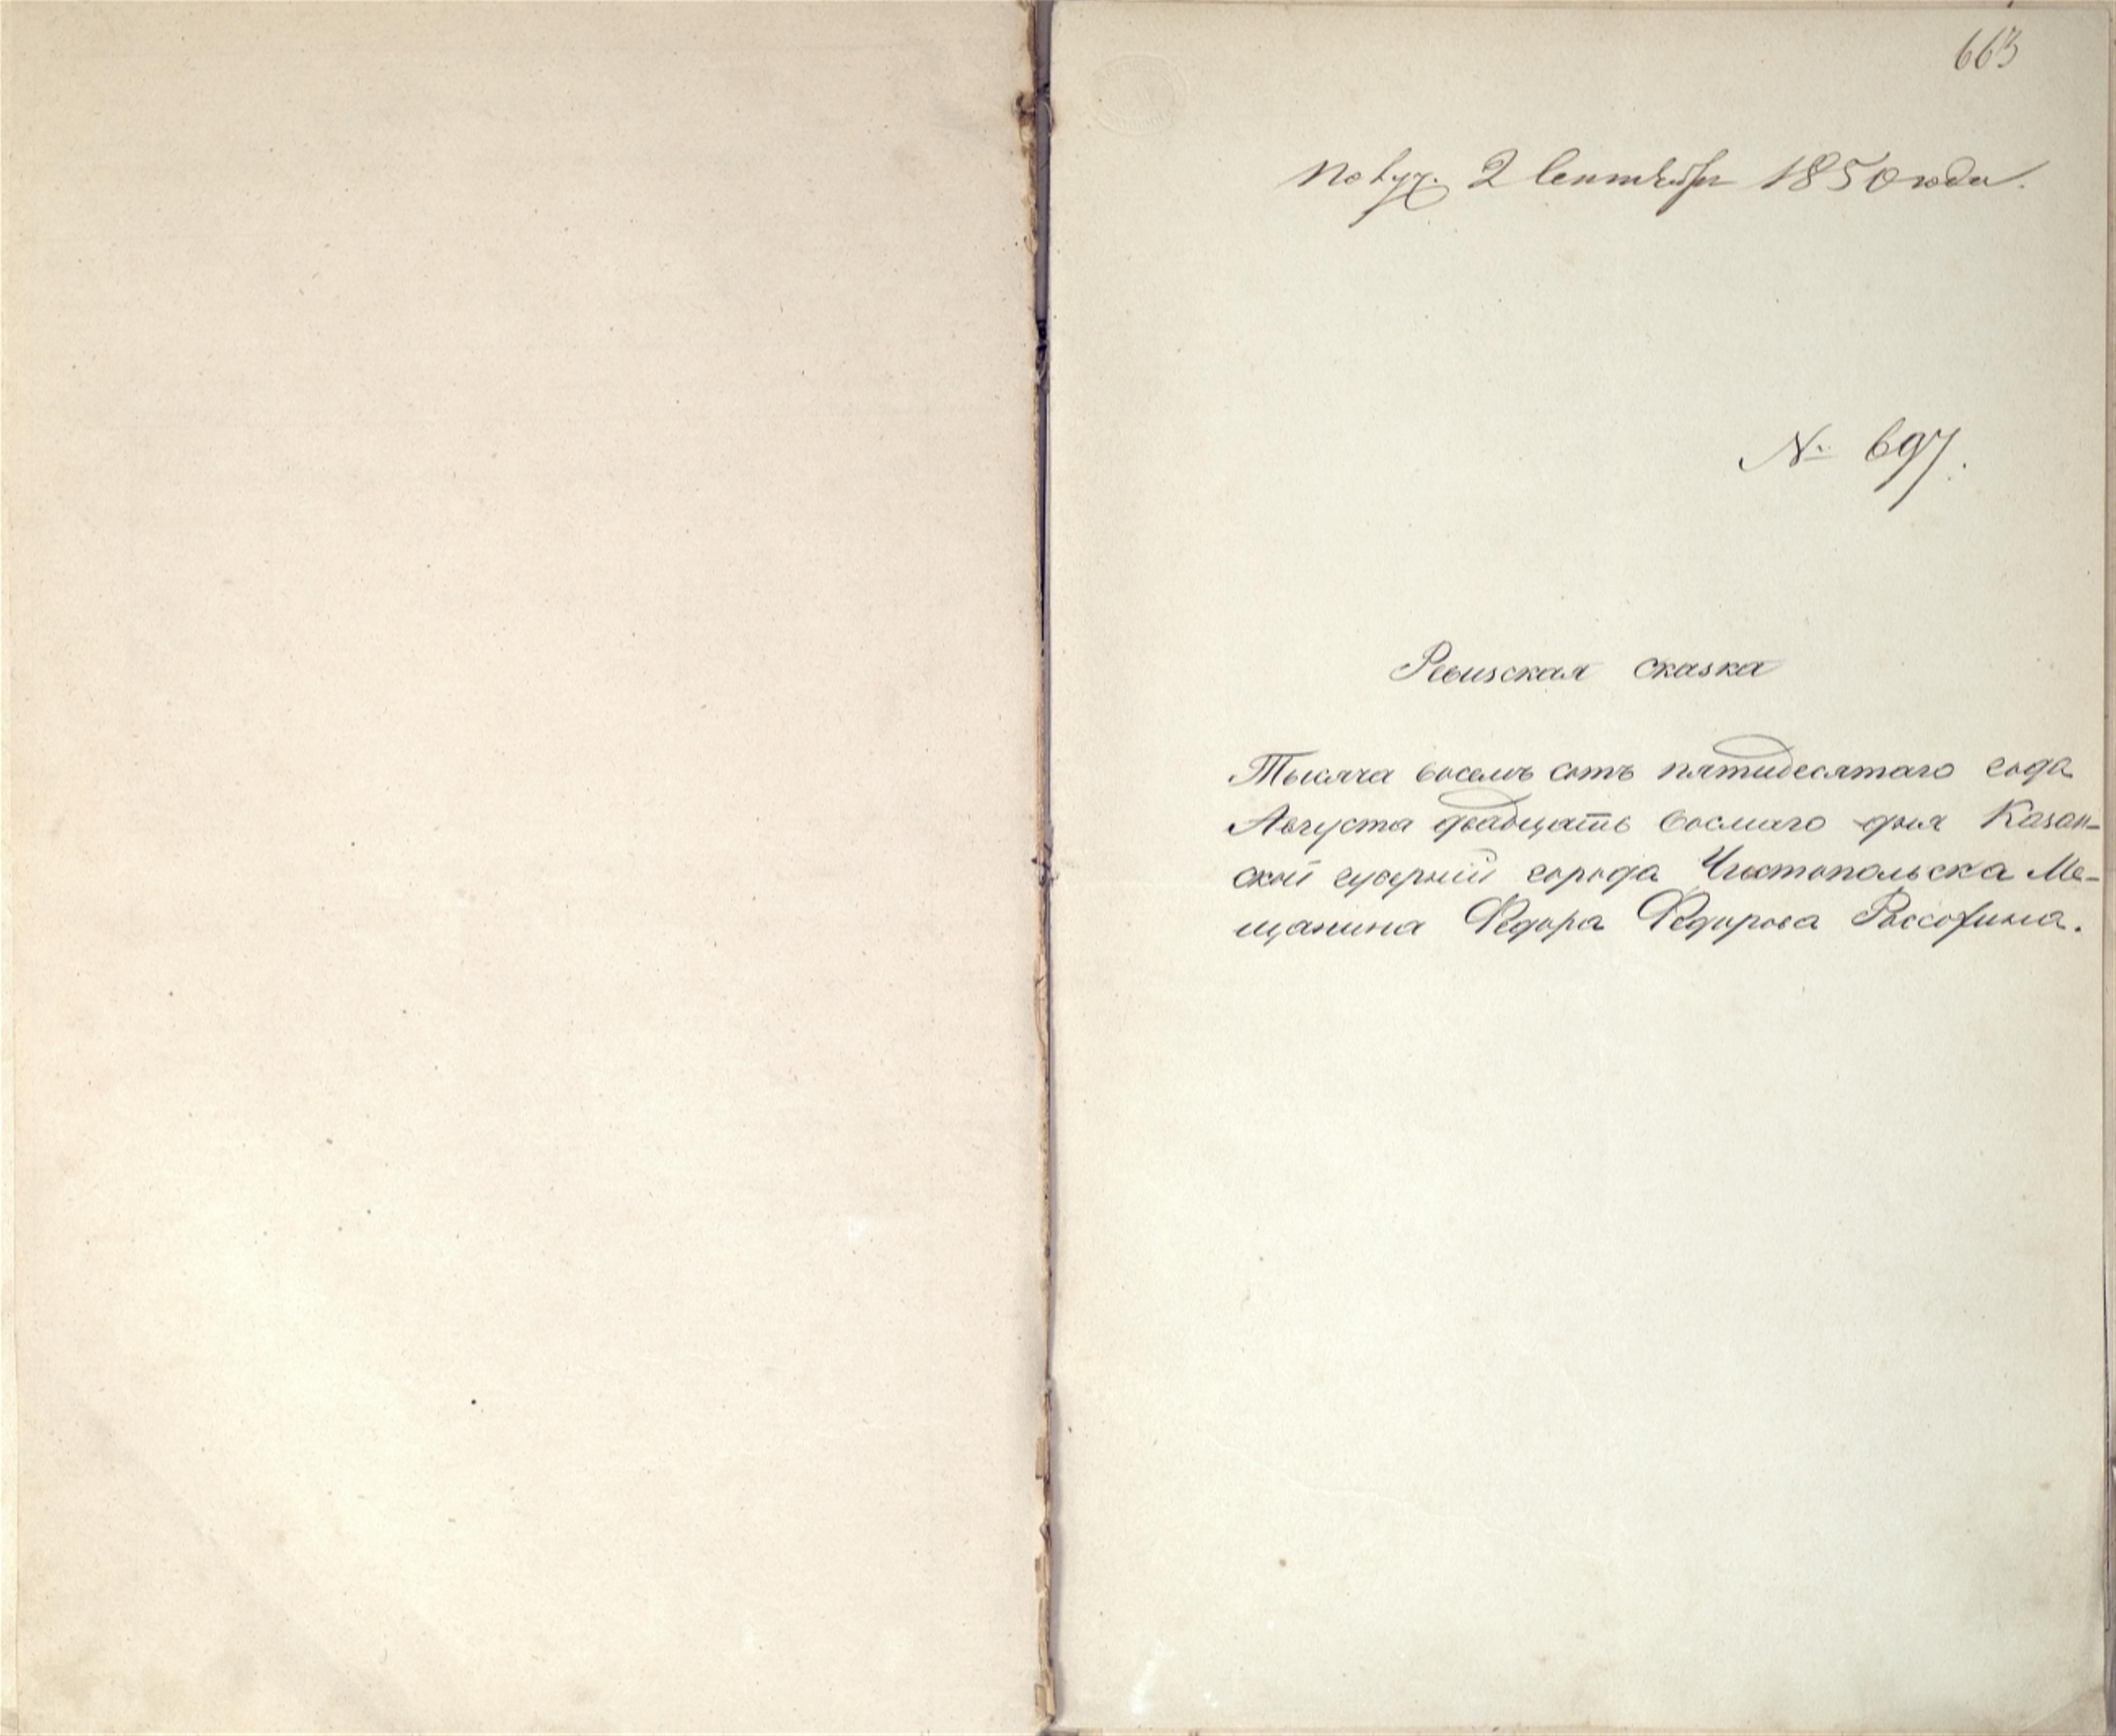 663
Получ. 2 Сентября 1850 года.
№ 697.
Ревизская сказка
Тысяча восемь сотъ пятидесятаго года
Августа двадцать восмаго дня Казан-
ской губерніи города Чистопольска Ме-
щанина Федора Федорова